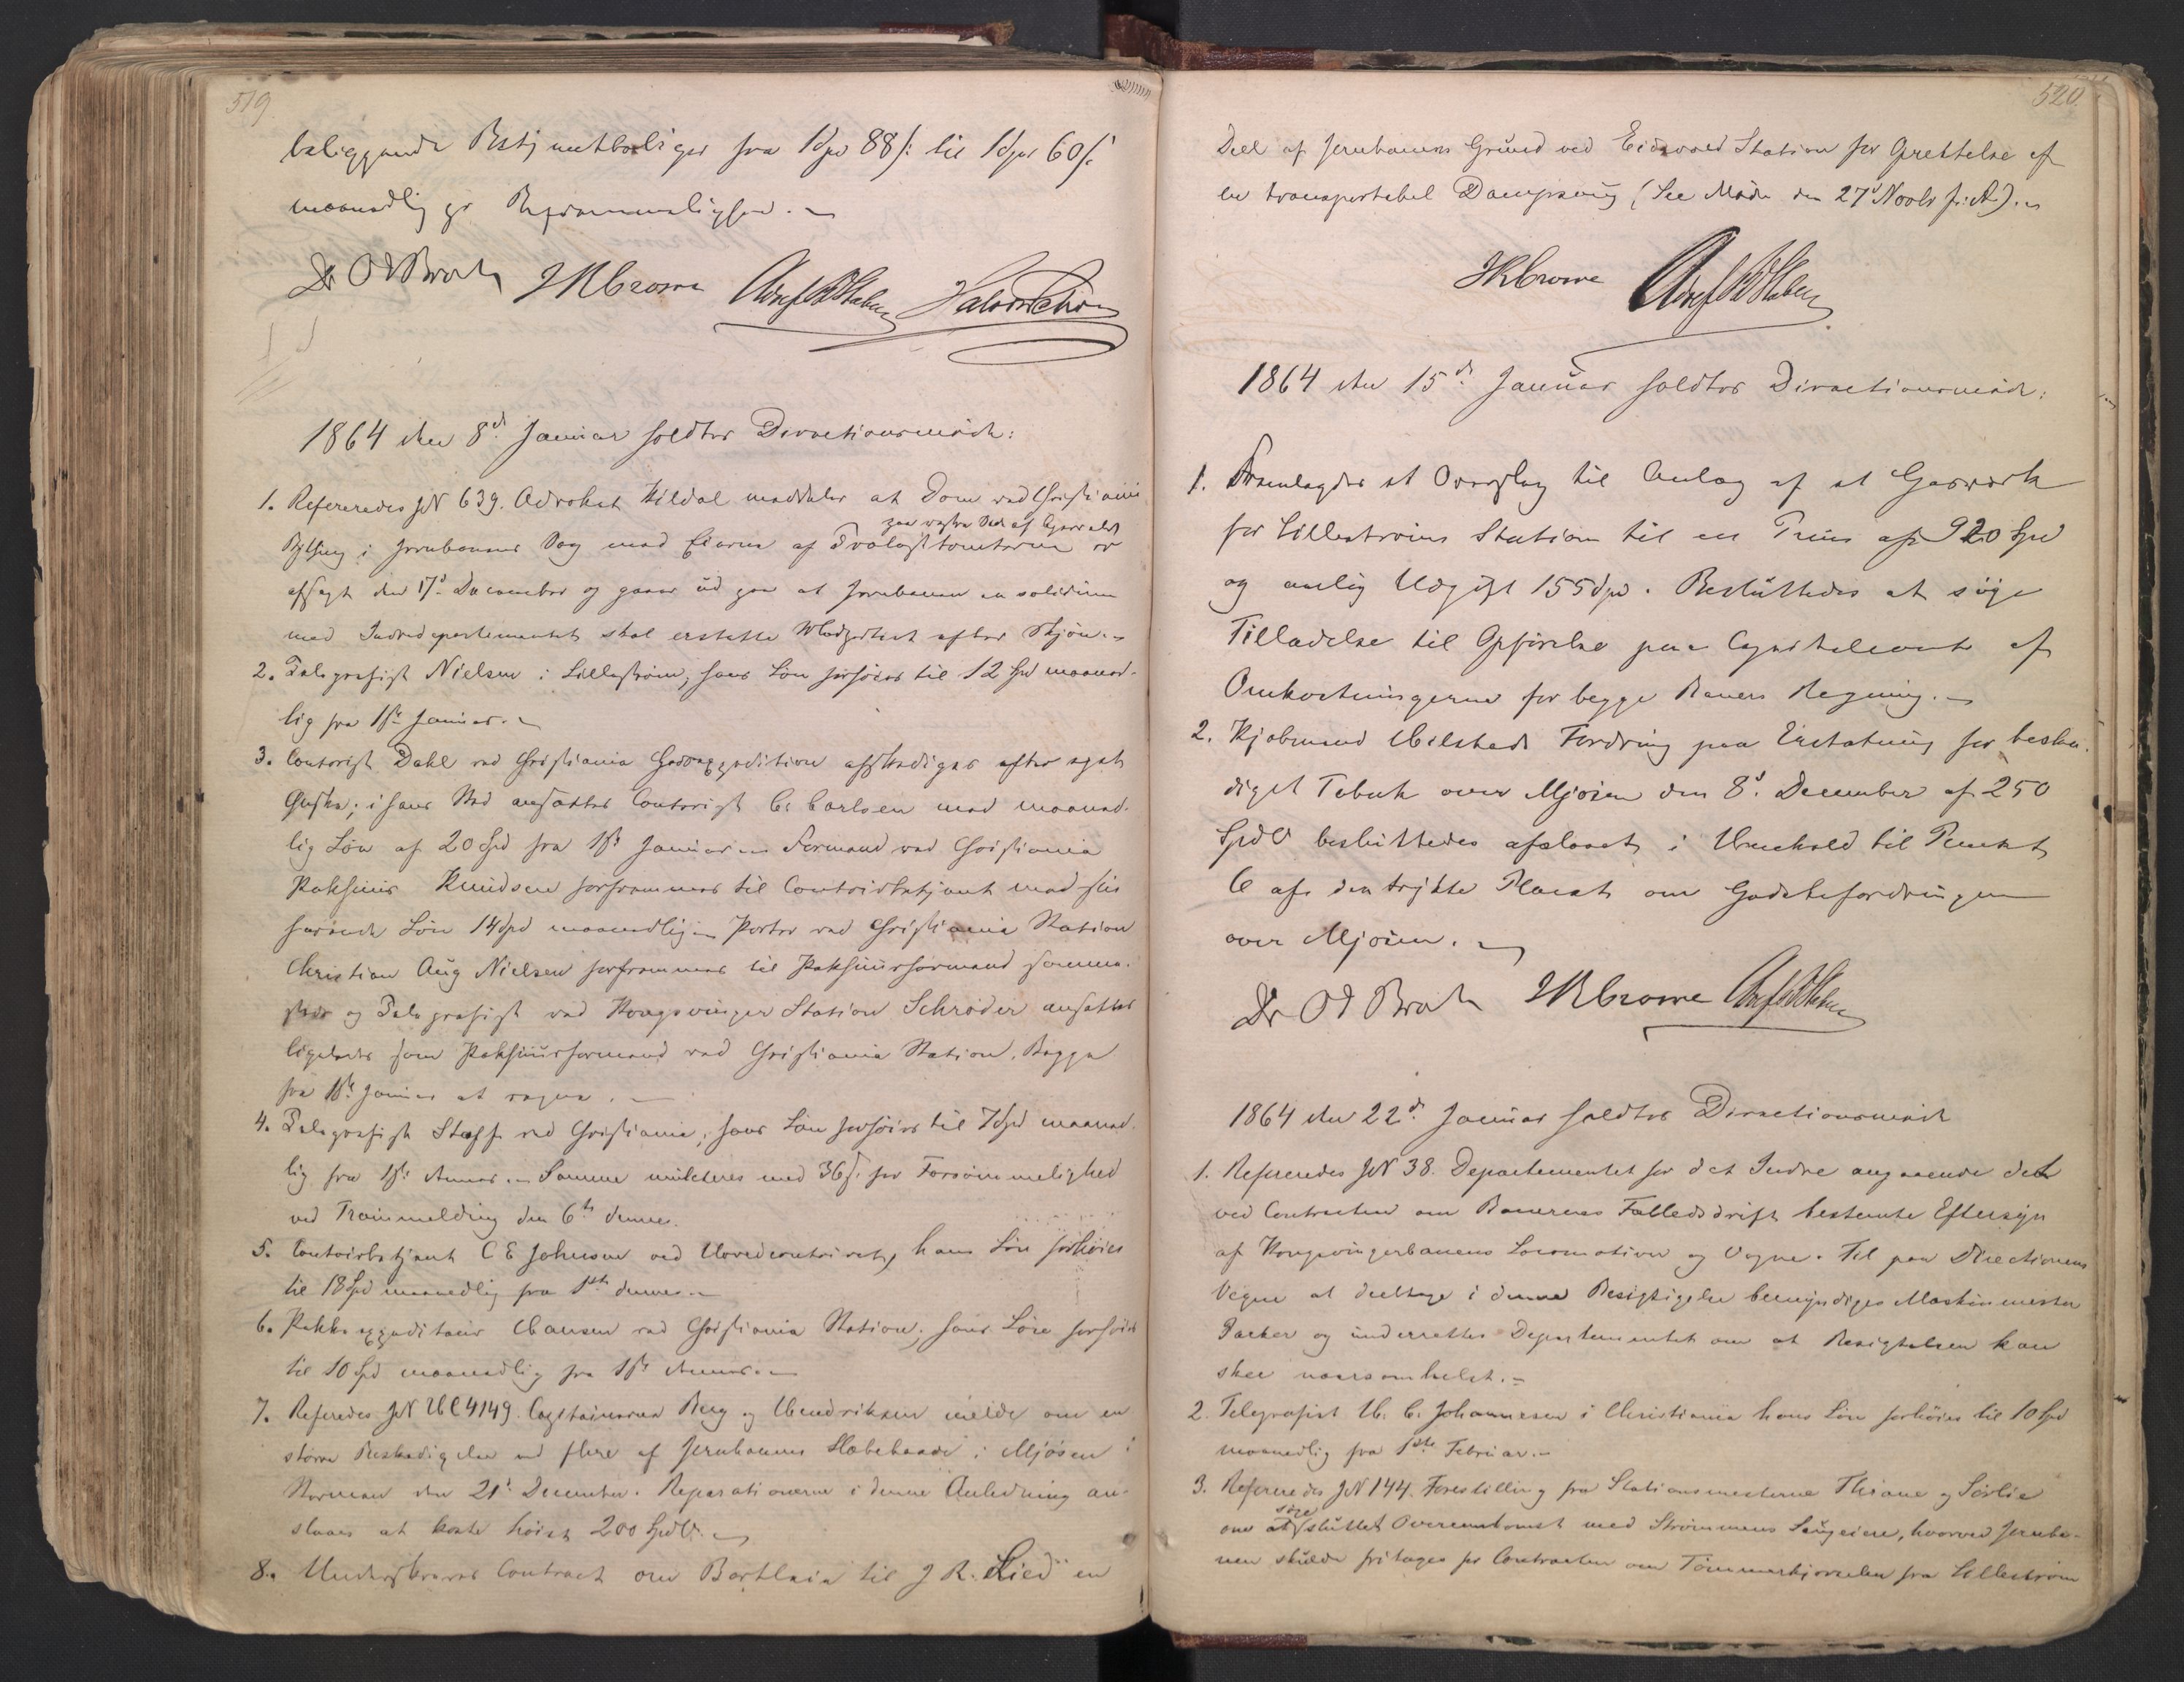 519
beliggende Betjentboliger fra 1 Spd 88 s: til 1 Spd 60 s:
maanedlig pr Beqvemmelighed.
Dr O J Broch JRCrowe Adv Halvor Schou
1864 den 8d: Januar holdtes Directionsmöde:
1. Refereredes JN 639. Advokat Hildal meddeler at Dom ved Christiania
paa vestre Side af Agerselv
Bything i Jernbanens Sag mod Eierne af Tvologstomterne er
afsagt den 17d December og gaaer ud paa at Jernbanen in solidum
med Indredepartementet skal erstatte Modpartiet efter Skjön.
2. Telegrafist Nielsen i Lilleström, hans Lön forhöies til 12 Spd maaned-
lig fra 1ste Januar.
3. Contorist Dahl ved Christiania Godsexpedition afskediges efter eget
Önske; i hans Sted ansættes Contorist C. Carlsen med maaned-
lig Lön af 20 Spd fra 1ste Januar. Formand ved Christiania
Pakhuus Knudsen forfremmes til Contoirbetjent med sin
havende Lön 14 Spd maanedlig. Porter ved Christiania Station
Christian Aug Nielsen forfremmes til Pakhuusformand samme-
steds og Telegrafist ved Kongsvinger Station Schröder ansættes
ligeledes som Pakhuusformand ved Christiania Station. Begge
fra 1ste Januar at regne.
4. Telegrafist Steff ved Christiania, hans Lön forhöies til 7 Spd maaned-
lig fra 1ste dennes. Samme mulcteres med 36 s. for Forsömmelighed
ved Trainmelding den 6te dennes.
5. Contoirbetjent C E Johnsen ved Hovedcontoiret, hans Lön forhöies
til 18 Spd maanedlig fra 1ste dennes.
6. Pakkexpediteur Hansen ved Christiania Station, hans Lön forhöies
til 10 Spd maanedlig fra 1ste dennes.
7. Referedes JN 4149. Capitainerne Berg og Hendriksen melde om en
större Beskadigelse ved flere af Jernbanens Slæbebaade i Mjösen i
Stormen den 21d December. Reparationerne i denne Anledning an-
slaaes at koste höist 200 Spd.
8. Underskreves Contract om Bortleie til J R. Lied en
520
Deel af Jernbanens Grund ved Eidsvold Station for Oprettelse af
en transportabel Dampsaug (See Möde den 27d Novbr f: A).
JRCrowe
1864 den 15d: Januar holdtes Directionsmöde:
1. Fremlagdes et Overslag til Anlæg af et Gasværk
for Lilleströms Station til en Priis af 920 Spd
og aarlig Udgift 155 Spd. Besluttedes at söge
Tilladelse til Opförelse paa Capitalconto af
Omkostningerne for begge Baners Regning.
2. Kjöbmand Milsteds Fordring paa Erstatning for beska-
diget Tobak over Mjösen den 8d. December af 250
Spd besluttedes afslaaet i Henhold til Punkt
6 af den trykte Placat om Godsbefordringen
over Mjösen.
Dr O J Broch JRCrowe
1864 den 22d. Januar holdtes Directionsmöde
1. Refereredes JN 38. Departementet for det Indre angaaende det
ved Contracten om Banernes Fælledsdrift bestemte Eftersyn
af Kongsvingerbanens Locomotiver og Vogne. Til paa Directionens
Vegne at deeltage i denne Besigtigelse bemyndiges Maskinmester
Parker og underrettes Departementet om at Besigtelsen kan
skee naarsomhelst.
2. Telegrafist H. C. Johannesen i Christiania hans Lön forhöies til 10 Spd
maanedlig fra 1ste Februar.
3. Refereredes JN 144. Forestilling fra Stationsmesterne Thrane og Sörlie
söge
om at sluttet Overeenkomst med Strömmens Saugeiere, hvorved Jernba-
nen skulde fritages for Contracten om Tömmerkjörselen fra Lilleström